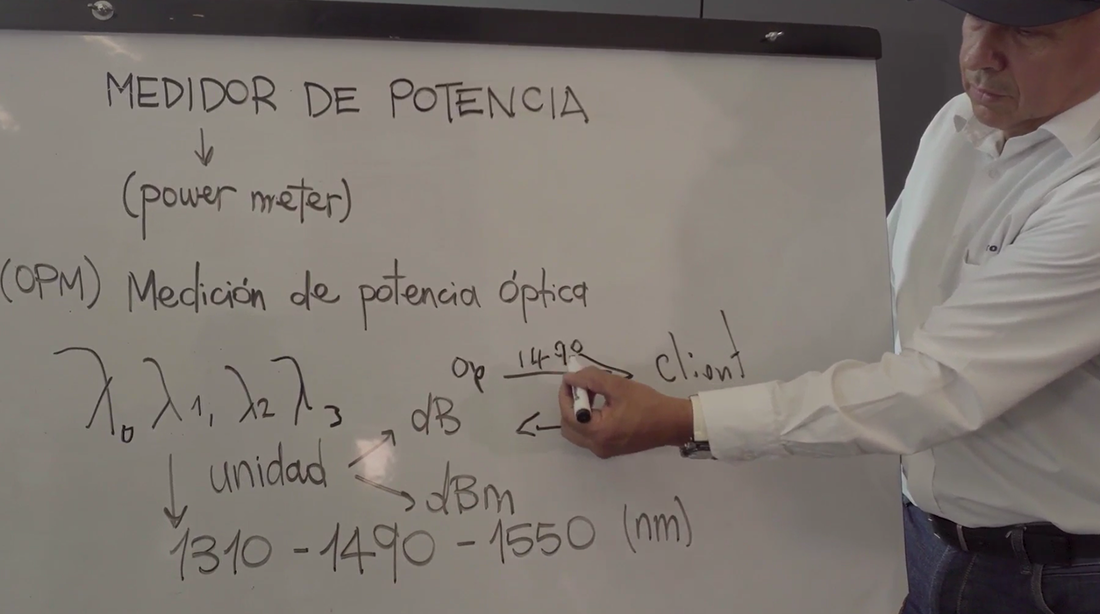 MEDIDOR DE POTENCIA
↓
(power meter)
(OPM) Medición de potencia óptica
Op 1490 client
λ0 λ1, λ2 λ3
dB
unidad
dBm
1310 - 1490 - 1550 (nm)